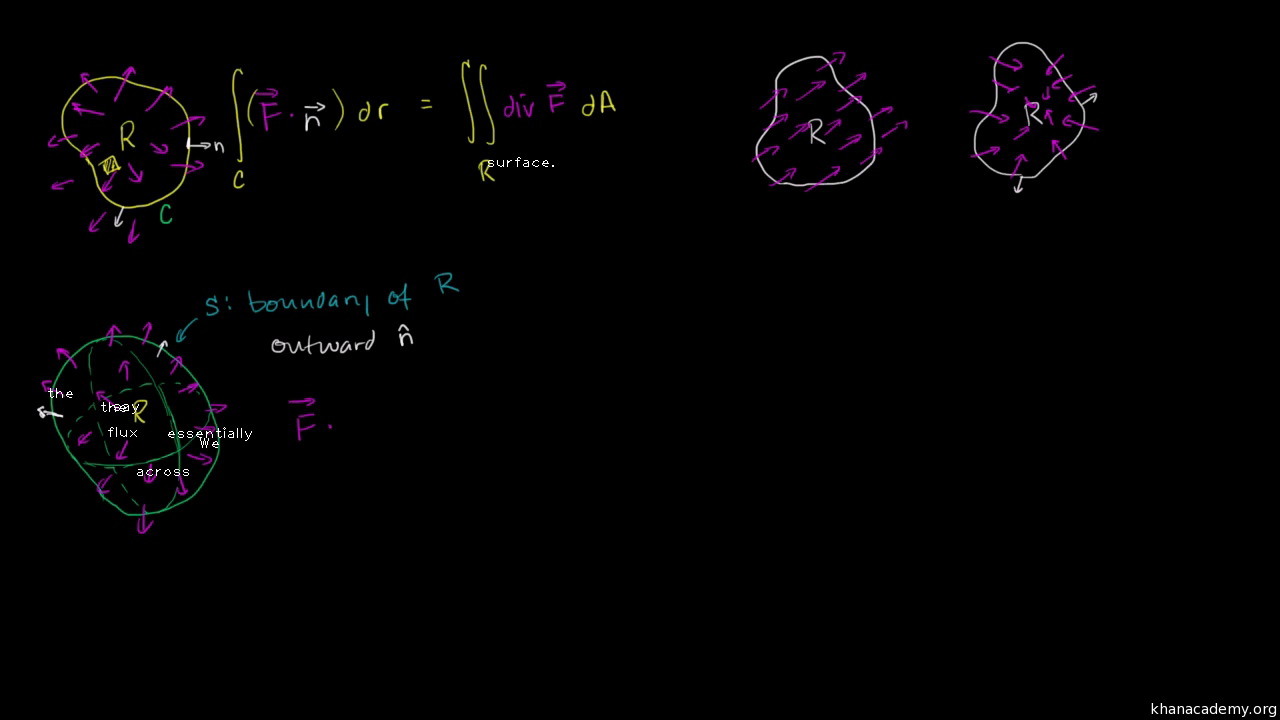 R
n
C
∫ ( F⃗ · n⃗ ) dr = ∬ div F⃗ dA
C
R
surface.
R
R
S: boundary of R
outward n̂
the
these
say
R
flux
essentially
We
across
F⃗ ·
khanacademy.org